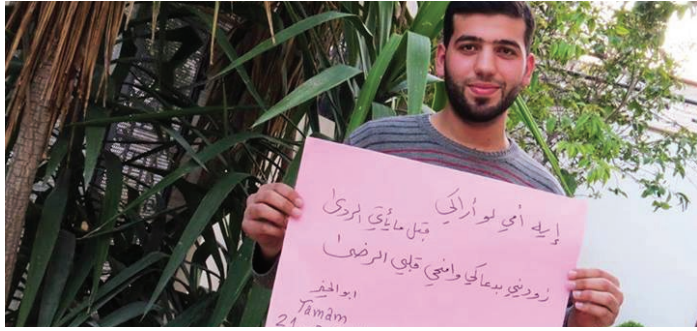 إيه أمي لو أراكي
قبل ما يأتي الردى
زوديني بدعاكي وامنحي قلبي الرضى
ابو الخير
Tamam
21